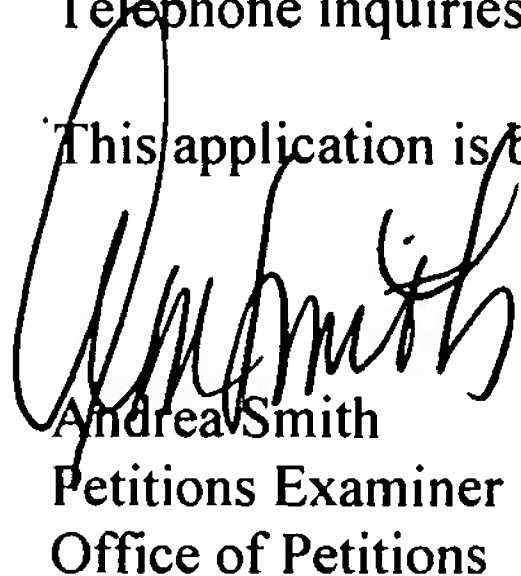 Telephone inquiries
This application is
Andrea Smith
Petitions Examiner
Office of Petitions